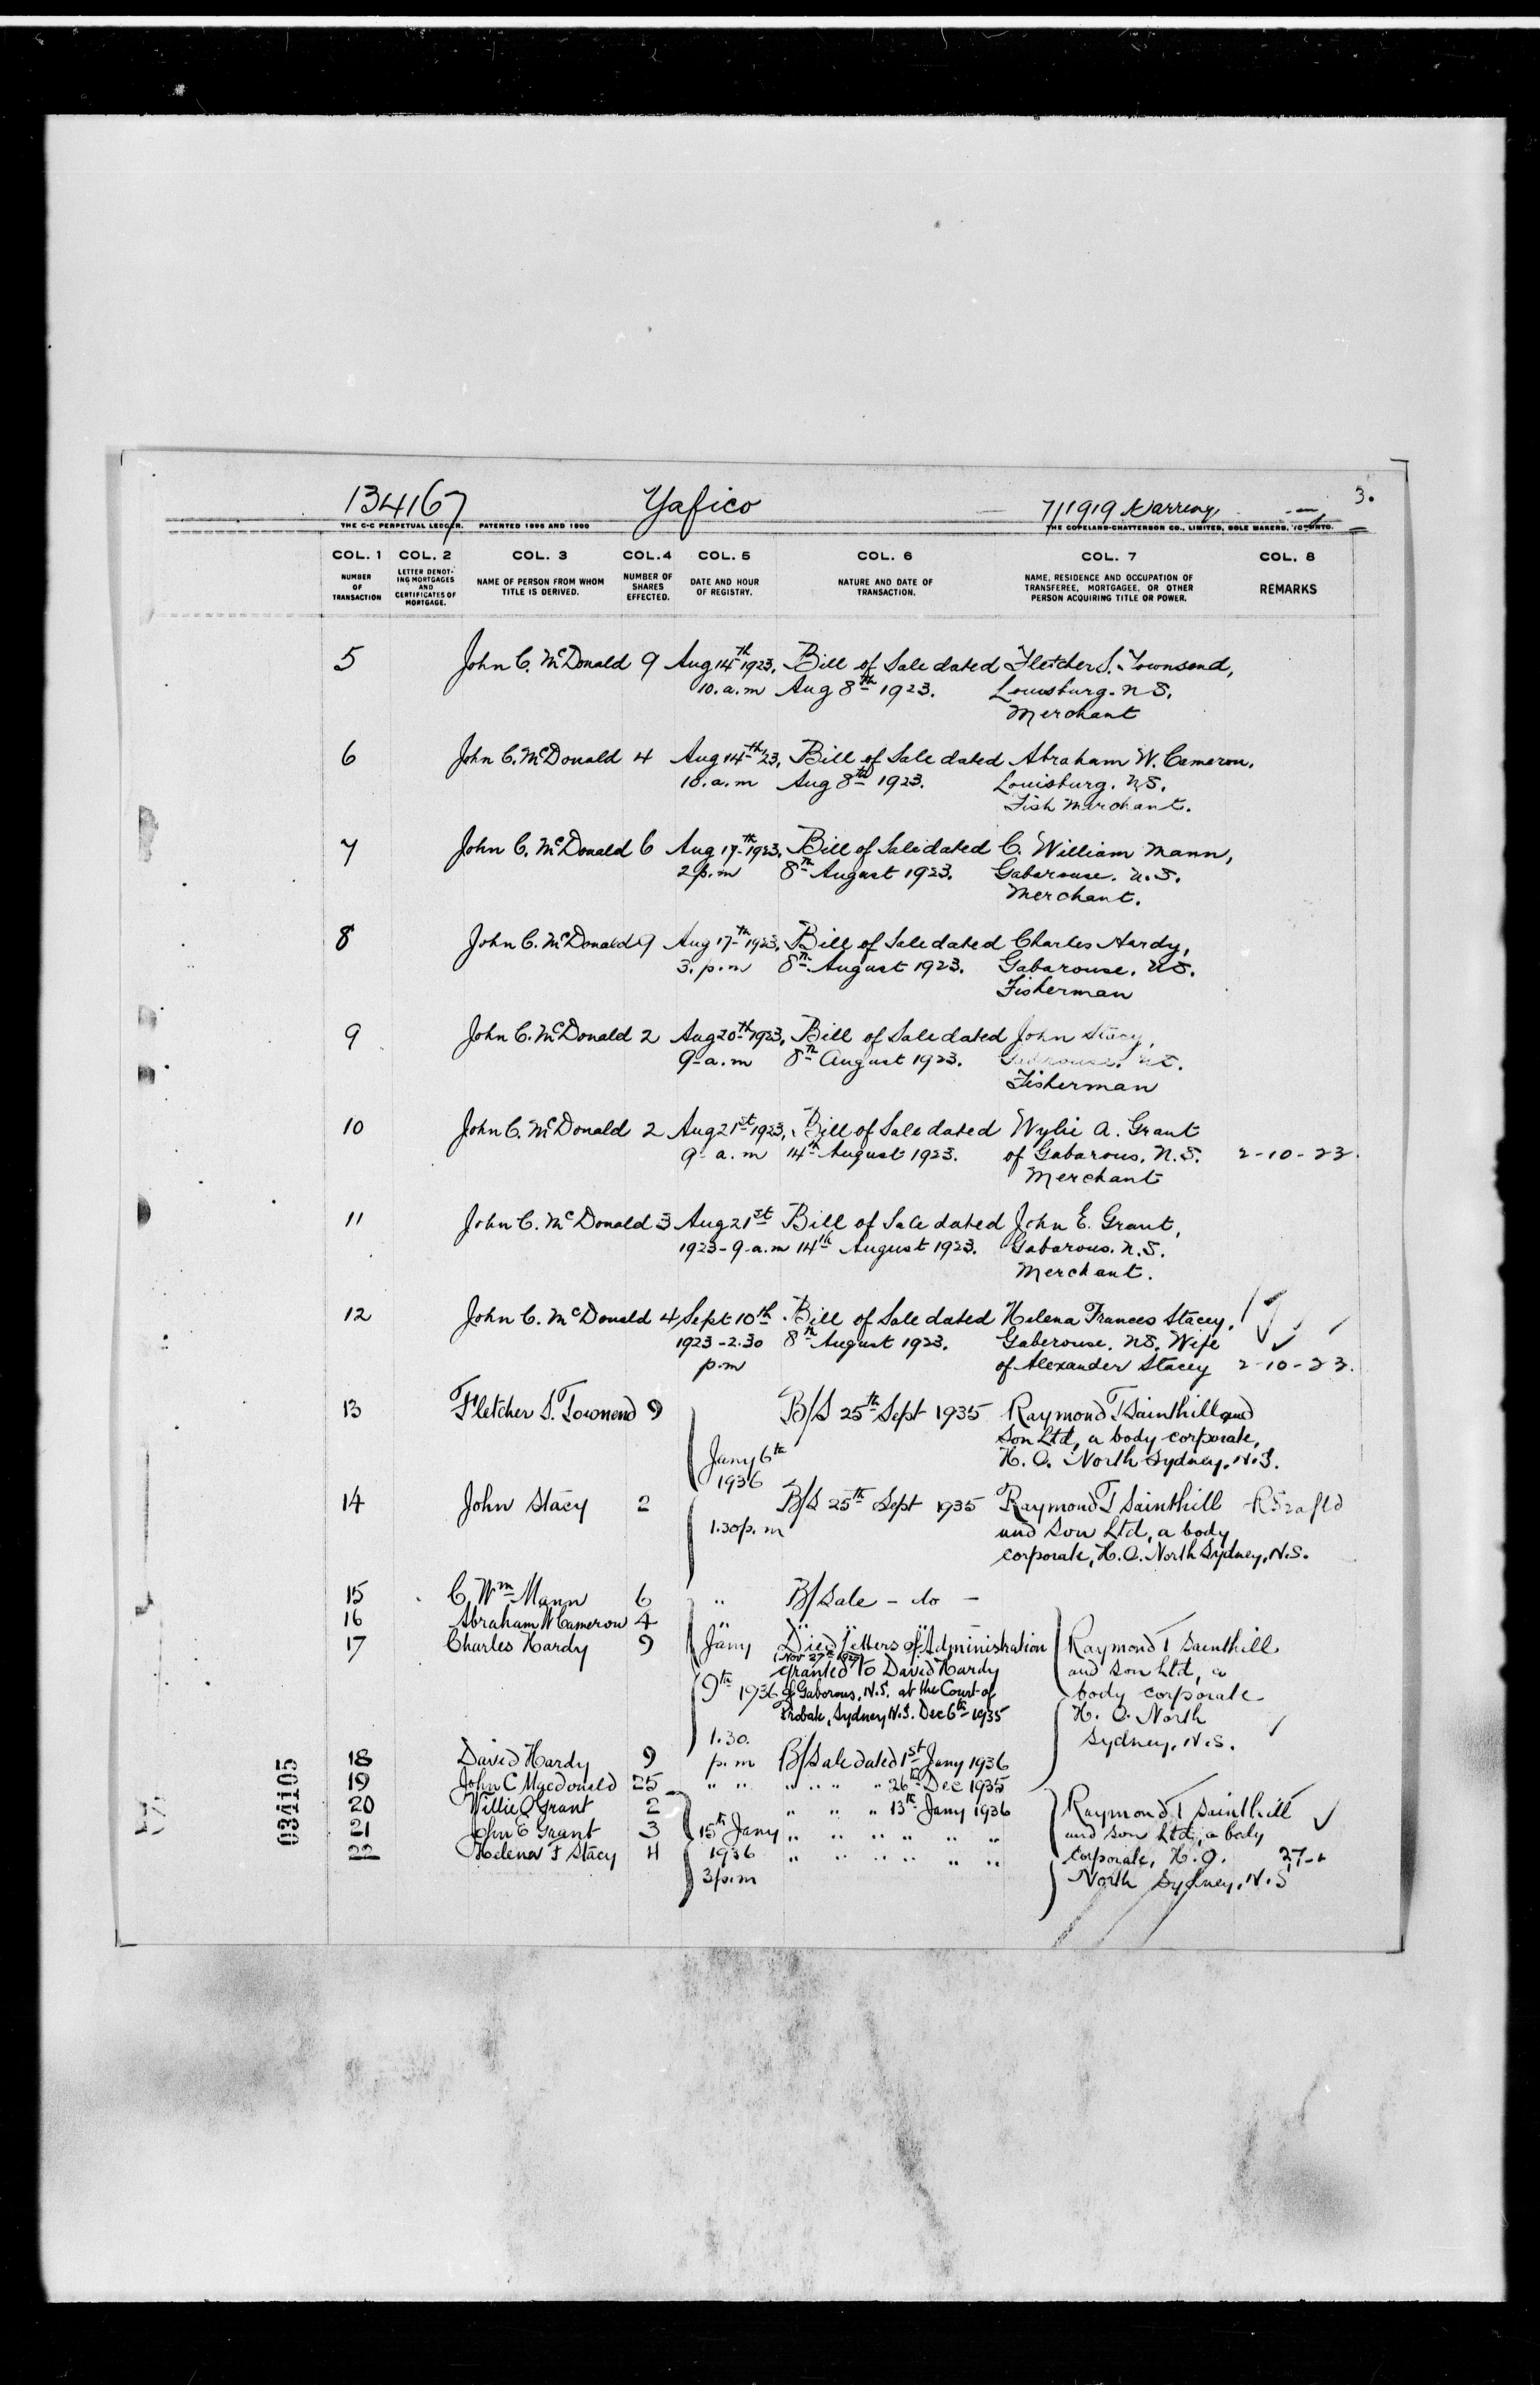 134167 Yafico 7/1919 3.
THE C-C PERPETUAL LEDGER. PATENTED 1896 AND 1900 THE COPELAND-CHATTERSON CO., LIMITED, SOLE MAKERS, TORONTO.
COL. 1 COL. 2 COL. 3 COL. 4 COL. 5 COL. 6 COL. 7 COL. 8
NUMBER OF TRANSACTION
LETTER DENOTING MORTGAGES AND CERTIFICATES OF MORTGAGE.
NAME OF PERSON FROM WHOM TITLE IS DERIVED.
NUMBER OF SHARES EFFECTED.
DATE AND HOUR OF REGISTRY.
NATURE AND DATE OF TRANSACTION.
NAME, RESIDENCE AND OCCUPATION OF TRANSFEREE, MORTGAGEE, OR OTHER PERSON ACQUIRING TITLE OR POWER.
REMARKS
5 John C. McDonald 9 Aug 14th 1923. Bill of Sale dated Fletcher S. Townsend,
10. a.m Aug 8th 1923. Louisburg. N.S.
Merchant
6 John C. McDonald 4 Aug 14th 23. Bill of Sale dated Abraham W. Cameron.
10. a.m Aug 8th 1923. Louisburg. N.S.
Fish Merchant.
7 John C. McDonald 6 Aug 17th 1923. Bill of Sale dated C. William Mann,
2 p.m 8th August 1923. Gabarouse. N.S.
Merchant.
8 John C. McDonald 9 Aug 17th 1923. Bill of Sale dated Charles Hardy,
3. p.m 8th August 1923. Gabarouse. N.S.
Fisherman
9 John C. McDonald 2 Aug 20th 1923. Bill of Sale dated John Stacy,
9-a.m 8th August 1923. Gabarouse. N.S.
Fisherman
10 John C. McDonald 2 Aug 21st 1923. Bill of Sale dated Wylie A. Grant
9- a. m 14th August 1923. of Gabarous, N.S. 2-10-23.
Merchant
11 John C. McDonald 3 Aug 21st Bill of Sale dated John E. Grant,
1923-9-a.m 14th August 1923. Gabarous. N.S.
Merchant.
12 John C. McDonald 4 Sept 10th Bill of Sale dated Helena Frances Stacey,
1923-2.30 8th August 1923. Gaberouse, NS. Wife
p.m of Alexander Stacey 2-10-23.
13 Fletcher S. Townend 9 B/S 25th Sept 1935 Raymond T Sainthill and
Son Ltd, a body corporate,
Jany 6th H. O. North Sydney, N.S.
1936
14 John Stacy 2 B/S 25th Sept 1935 Raymond T Sainthill
1.30 p.m and Son Ltd, a body
corporate, H.O. North Sydney, N.S.
15 C. Wm Mann 6 " B/Sale - do -
16 Abraham W Cameron 4 " " " "
17 Charles Hardy 9 Jany Died Letters of Administration Raymond T Sainthill
(Nov 27th
granted to David Hardy and Son Ltd, a
9th 1936 of Gabarous, N.S. at the Court of body corporate
Probate, Sydney N.S. Dec 6th 1935 H. O. North
1.30. Sydney, N.S.
18 David Hardy 9 p.m B/Sale dated 1st Jany 1936
19 John C Macdonald 25 " " " " " " 26th Dec 1935
20 Willie A Grant 2 " " " 13th Jany 1936 Raymond T Sainthill
21 John E Grant 3 15th Jany " " " " " " and Son Ltd, a body
22 Helena F Stacy 4 1936 " " " " " " corporate, H.O.
3 p.m North Sydney, N.S
034105